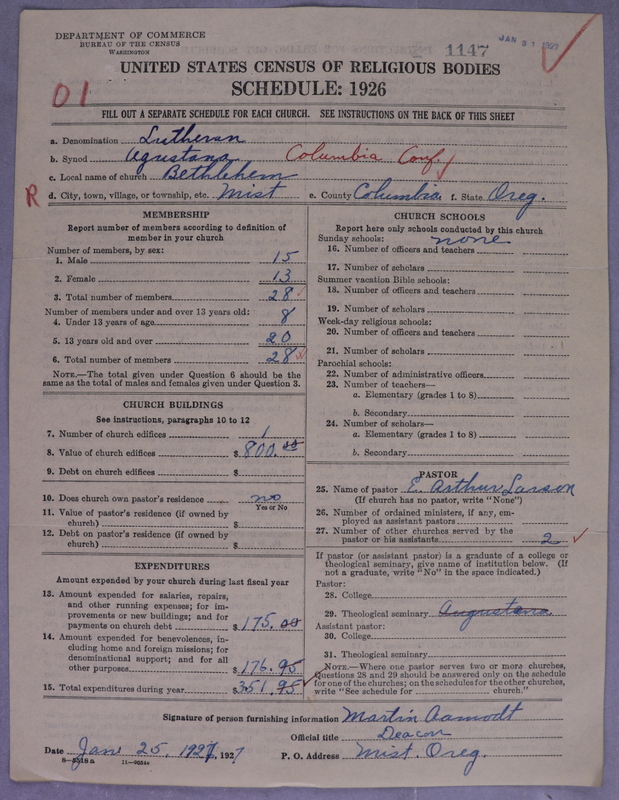 DEPARTMENT OF COMMERCE
BUREAU OF THE CENSUS
WASHINGTON
1147
JAN 31 1927
UNITED STATES CENSUS OF RELIGIOUS BODIES
SCHEDULE: 1926
01
FILL OUT A SEPARATE SCHEDULE FOR EACH CHURCH. SEE INSTRUCTIONS ON THE BACK OF THIS SHEET
a. Denomination Lutheran
b. Synod Agustana Columbia Conf.
c. Local name of church Bethlehem
R d. City, town, village, or township, etc. Mist e. County Columbia f. State Oreg.
MEMBERSHIP
Report number of members according to definition of
member in your church
Number of members, by sex:
1. Male 15
2. Female 13
3. Total number of members 28
Number of members under and over 13 years old:
4. Under 13 years of age 8
5. 13 years old and over 20
6. Total number of members 28
NOTE.—The total given under Question 6 should be
same as the total of males and females given under Question 3.
CHURCH BUILDINGS
See instructions, paragraphs 10 to 12
7. Number of church edifices 1
8. Value of church edifices $ 800.00
9. Debt on church edifices $
10. Does church own pastor's residence no
Yes or No
11. Value of pastor's residence (if owned by
church) $
12. Debt on pastor's residence (if owned by
church) $
EXPENDITURES
Amount expended by your church during last fiscal year
13. Amount expended for salaries, repairs,
and other running expenses; for im-
provements or new buildings; and for
payments on church debt $ 175.00
14. Amount expended for benevolences, in-
cluding home and foreign missions; for
denominational support; and for all
other purposes $ 176.95
15. Total expenditures during year $ 351.95
CHURCH SCHOOLS
Report here only schools conducted by this church
Sunday schools: none
16. Number of officers and teachers
17. Number of scholars
Summer vacation Bible schools:
18. Number of officers and teachers
19. Number of scholars
Week-day religious schools:
20. Number of officers and teachers
21. Number of scholars
Parochial schools:
22. Number of administrative officers
23. Number of teachers—
a. Elementary (grades 1 to 8)
b. Secondary
24. Number of scholars—
a. Elementary (grades 1 to 8)
b. Secondary
PASTOR
25. Name of pastor E. Arthur Larson
(If church has no pastor, write "None")
26. Number of ordained ministers, if any, em-
ployed as assistant pastors
27. Number of other churches served by the
pastor or his assistants 2
If pastor (or assistant pastor) is a graduate of a college or
theological seminary, give name of institution below. (If
not a graduate, write "No" in the space indicated.)
Pastor:
28. College
29. Theological seminary Augustana
Assistant pastor:
30. College
31. Theological seminary
NOTE.—Where one pastor serves two or more churches,
Questions 28 and 29 should be answered only on the schedule
for one of the churches; on the schedules for the other churches,
write "See schedule for church."
Signature of person furnishing information Martin Aamodt
Official title Deacon
Date Jan 25, 1927, 1927 P. O. Address Mist. Oreg.
8—5518a 11—9654a